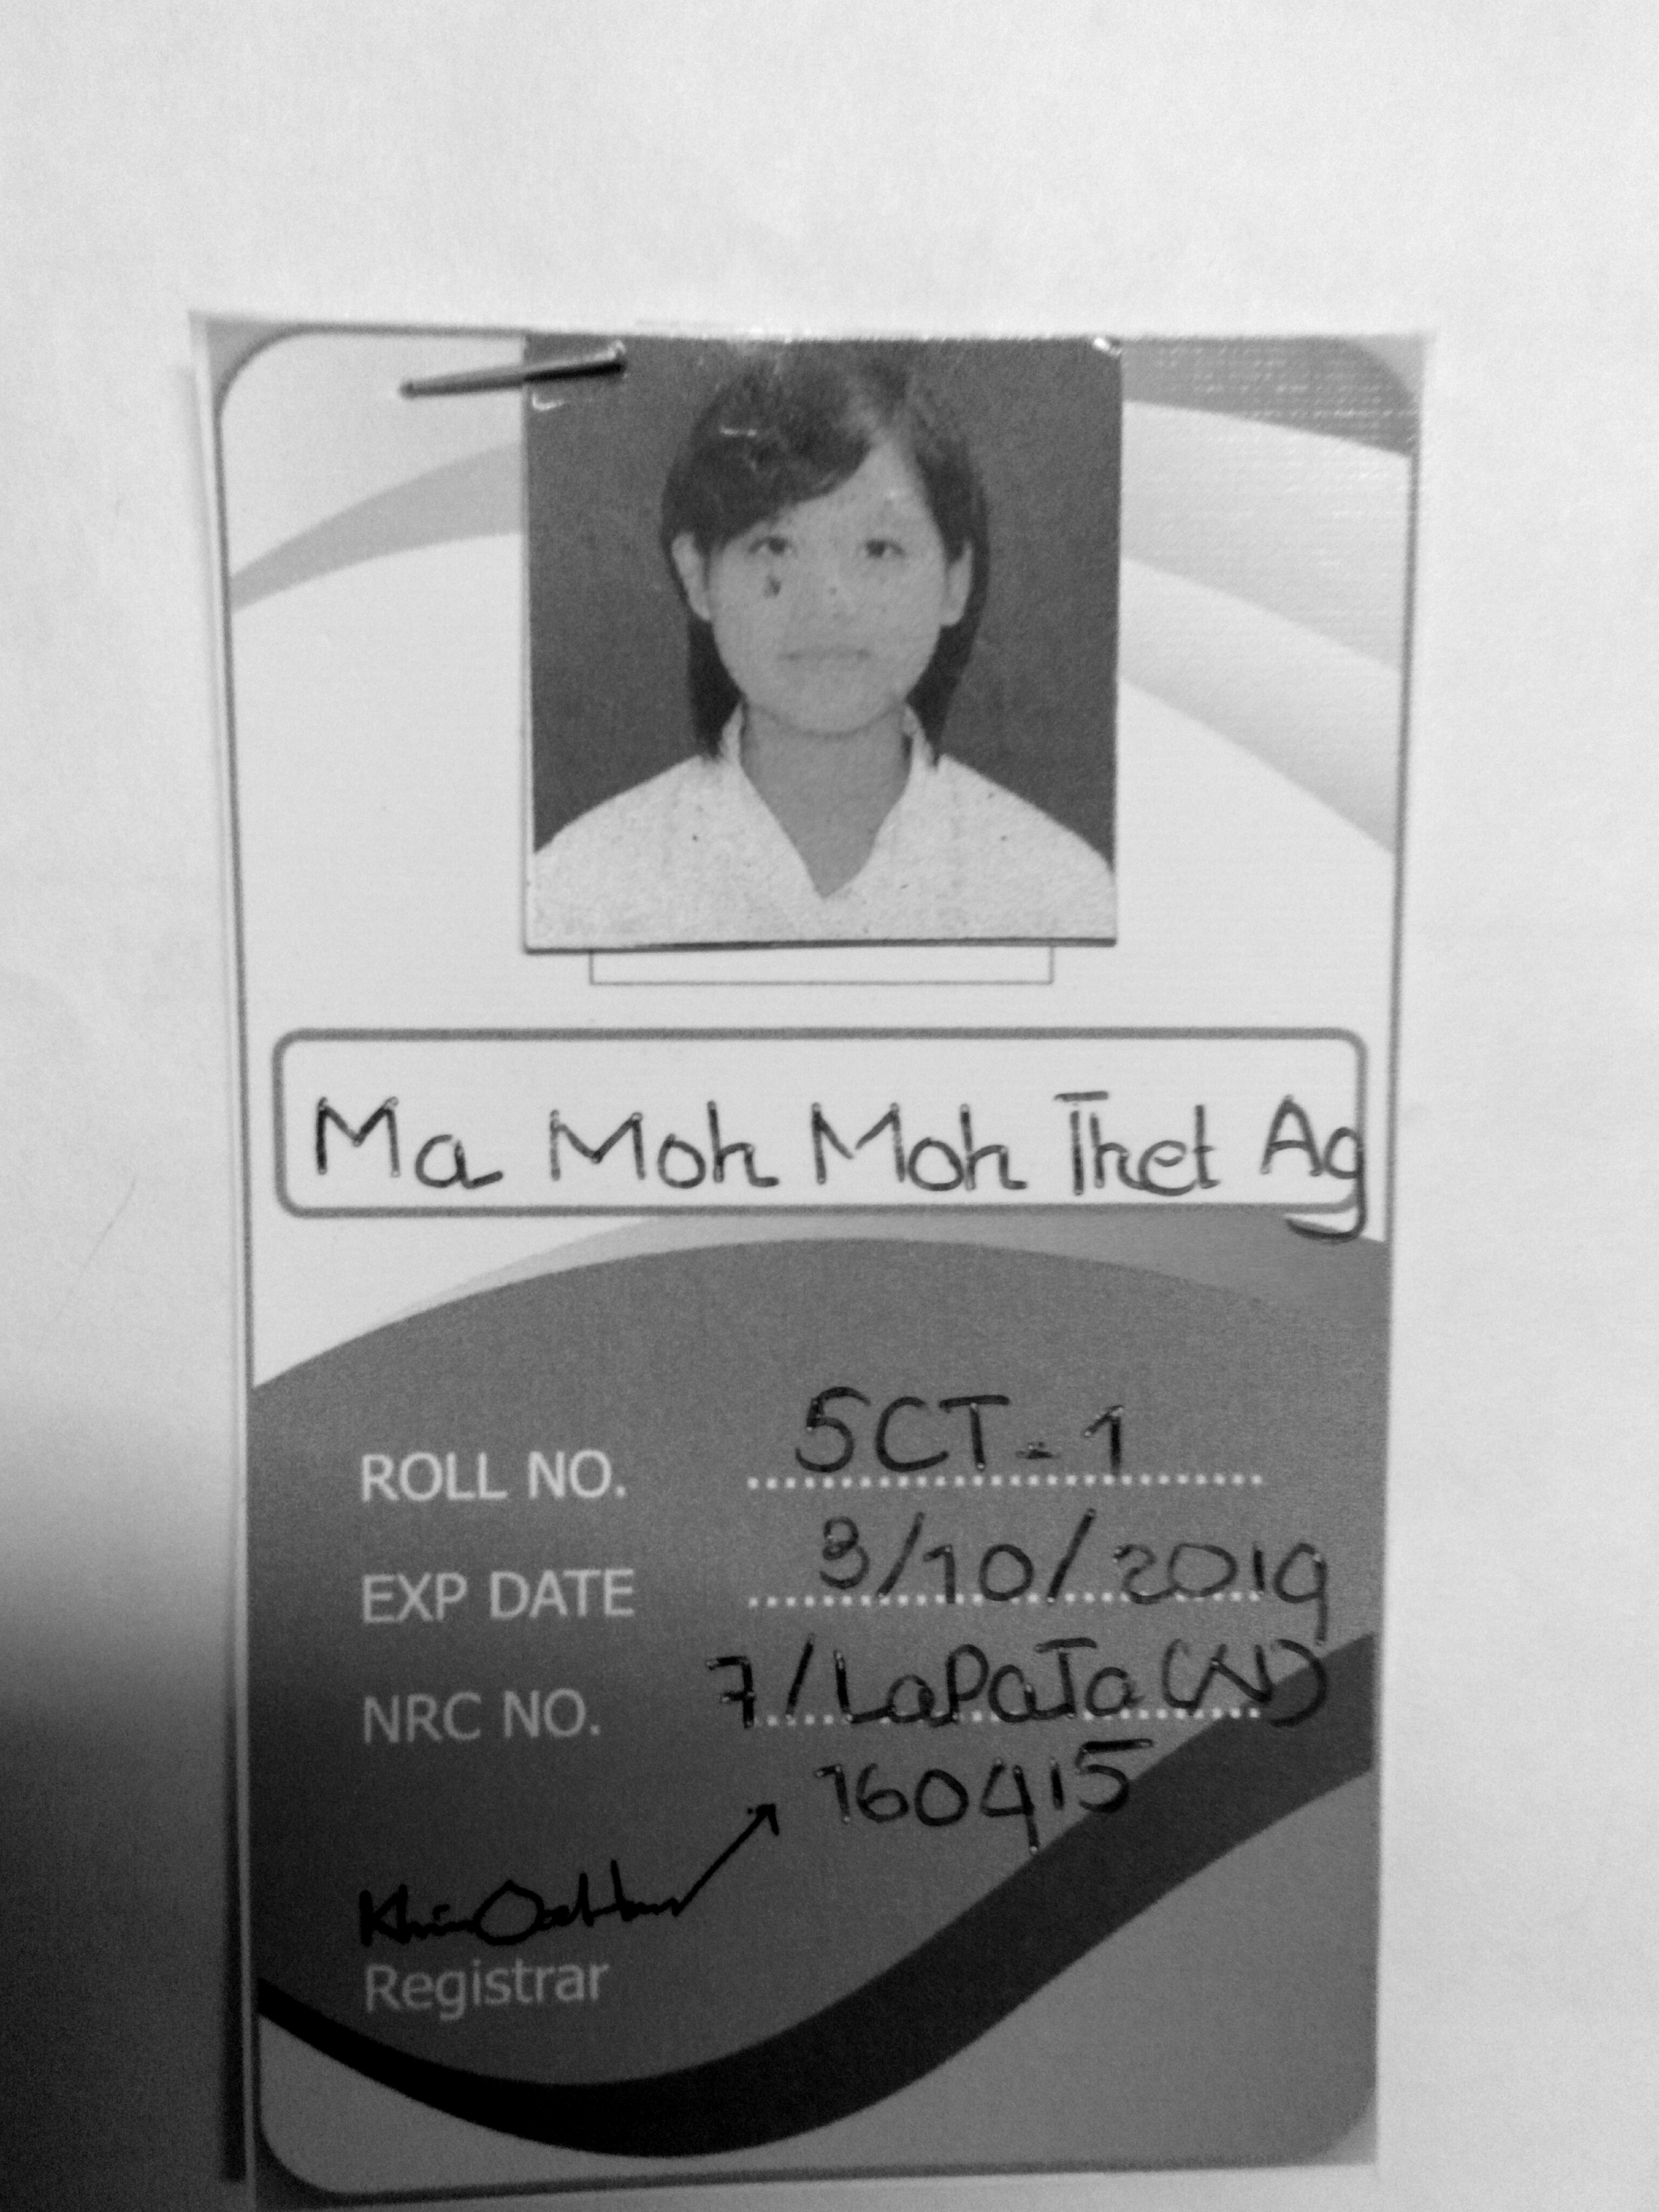 Ma Moh Moh Thet Ag
ROLL NO. 5CT-1
EXP DATE 3/10/2019
NRC NO. 7/LaPaTa(N)
160415
Registrar